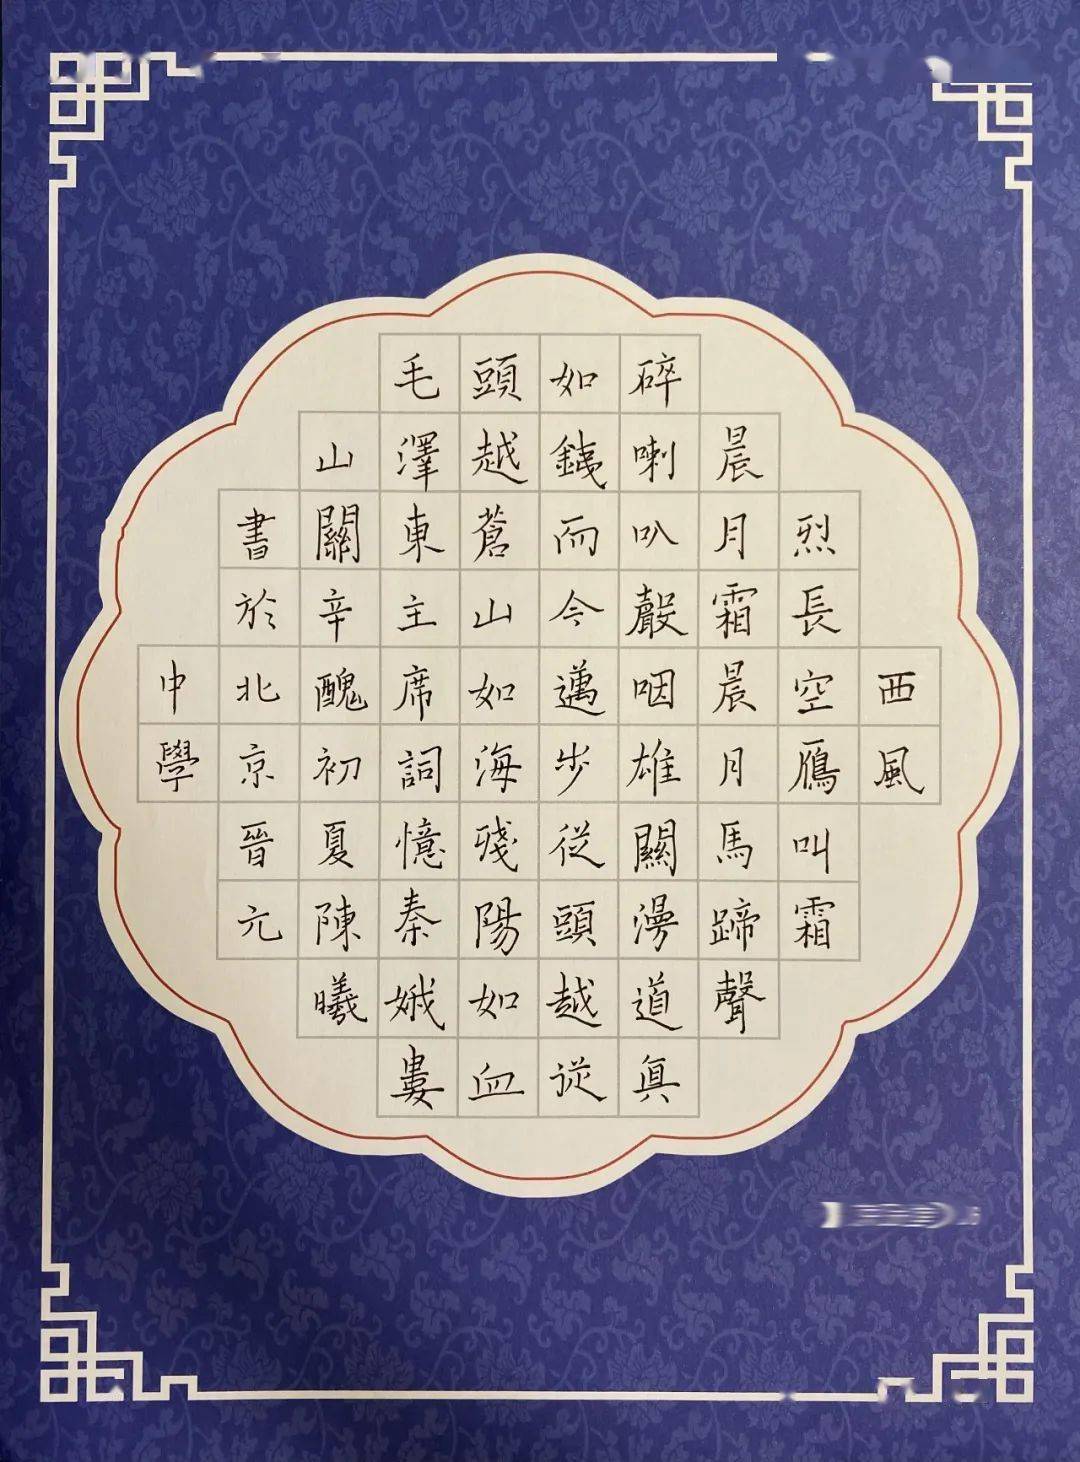 西風
烈長空鴈叫霜
晨月霜晨月馬蹄聲
碎喇叭聲咽雄關漫道真
如鐵而今邁步從頭越從
頭越蒼山如海殘陽如血
毛澤東主席詞憶秦娥婁
山關辛醜初夏陳曦
書於北京晉元
中學